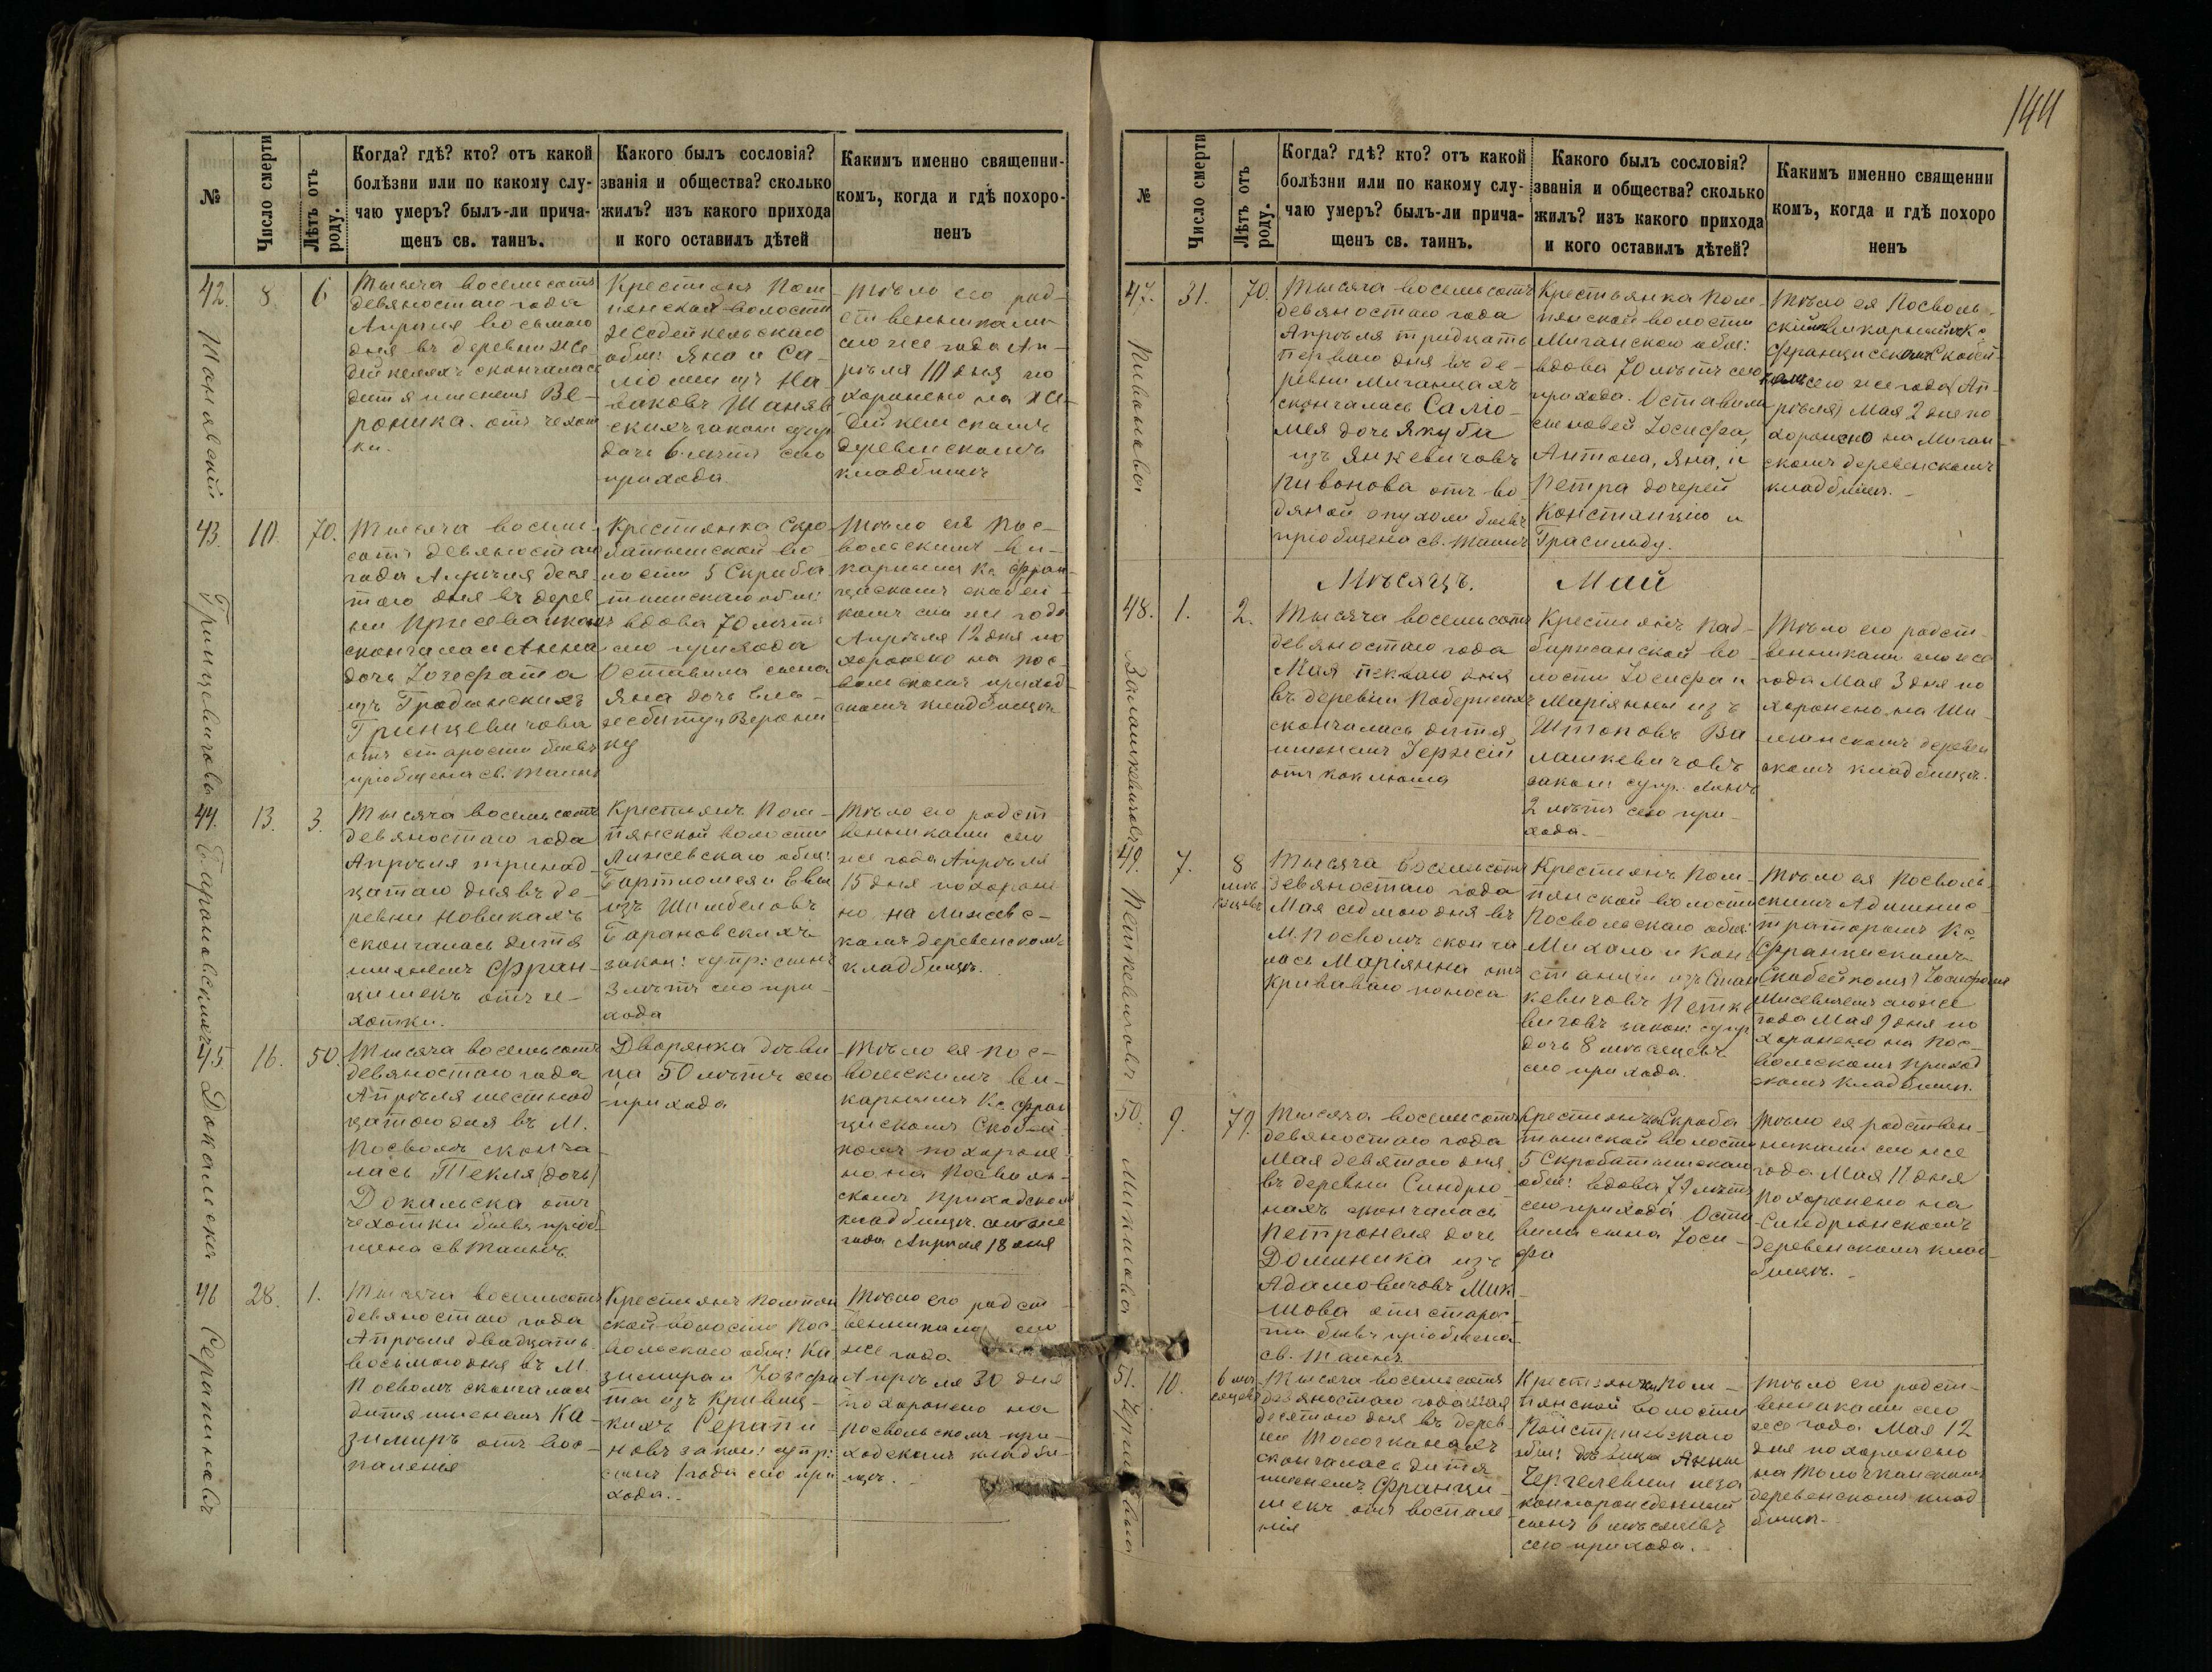 144
№
Число смерти
Лѣтъ отъ
роду.
Когда? гдѣ? кто? отъ какой
болѣзни или по какому слу-
чаю умеръ? былъ-ли прича-
щенъ св. таинъ.
Какого былъ сословія?
званія и общества? сколько
жилъ? изъ какого прихода
и кого оставилъ дѣтей
Какимъ именно священни-
комъ, когда и гдѣ похоро-
ненъ
42.
8.
6
Тысяча восемьсотъ
девяностаго года
Апрѣля восьмаго
дня въ деревни
скончалась
дитя именемъ Ве-
роника отъ чехот
ки.
Крестьянъ Пом
пянской волости
общ: Яна и Са-
ломеи изъ
законн супр
дочь 6 лѣтъ сего
прихода
Тѣло его род-
ственниками
сего же года Ап-
рѣля 10 дня по
хоронено на
деревенскомъ
кладбищѣ
43.
10.
70.
Тысяча восемь
сотъ девяностаго
года Апрѣля деся
таго дня въ дерев
ни
скончалась Анна
дочь Іозефата
изъ Гродзинскихъ
Гринцевичова
отъ старости бывъ
пріобщена св. Таинъ
Крестьянка Скро
батышской во
лости 5 Скроба
тышскаго общ:
вдова 70 лѣтъ
сего прихода
Оставила сына
Яна дочь Ель-
жбету и Верони
ку
Тѣло ея Пос-
вольскимъ Ви-
карнымъ Кс. Фран
цискомъ Скабей-
комъ сего же года
Апрѣля 12 дня по
хоронено на Пос-
вольскомъ приход
скомъ кладбищѣ
44.
13.
3.
Тысяча восемьсотъ
девяностаго года
Апрѣля тринад
цатаго дня въ де-
ревни Новикахъ
скончалась дитя
именемъ Фран-
цишекъ отъ че-
хотки.
Крестьянъ Пом-
пянской волости
общ:
Бартломея и Евы
изъ Шимбеловъ
Барановскихъ
закон: супр: сынъ
3 лѣтъ сего при-
хода
Тѣло его родст
венниками сего
же года Апрѣля
15 дня похороне
но на
комъ деревенскомъ
кладбищѣ.
45
16.
50.
Тысяча восемьсотъ
девяностаго года
Апрѣля шестнад
цатаго дня въ М.
Посволѣ сконча
лась Текля (дочь)
Докальска отъ
чехотки бывъ пріоб
щена св Таинъ.
Дворянка дѣви
ца 50 лѣтъ сего
прихода
Тѣло ея Пос-
вольскимъ Ви-
карнымъ Кс Фран
цискомъ Скабей
комъ похороне
но на Посволь-
скомъ приходском
кладбищѣ. сего же
года Апрѣля 18 дня
46
28.
1.
Тысяча восемьсотъ
девяностаго года
Апрѣля двадцать
восьмаго дня въ М.
Посволѣ скончалась
дитя именемъ Ка-
зимиръ отъ вос-
паленья
Крестьянъ Помпян
ской волости Пос-
вольскаго общ: Ка
зимира и Іозефа
ты изъ Кривиц-
кихъ Серапи-
новъ закон: супр:
сынъ 1 года сего при
хода.
Тѣло его родст-
венниками сего
же года
Апрѣля 30 дня
похоронено на
Посвольскомъ при-
ходскомъ кладби-
щѣ.
Гринцевичовы
Барановскихъ
Докальска
Серапиновъ
№
Число смерти
Лѣтъ отъ
роду.
Когда? гдѣ? кто? отъ какой
болѣзни или по какому слу-
чаю умеръ? былъ-ли прича-
щенъ св. таинъ.
Какого былъ сословія?
званія и общества? сколько
жилъ? изъ какого прихода
и кого оставилъ дѣтей?
Какимъ именно священни
комъ, когда и гдѣ похоро
ненъ
47.
31.
70.
Тысяча восемьсотъ
девяностаго года
Апрѣля тридцать
перваго дня въ де-
ревни Миганцахъ
скончалась Саліо-
мея дочь Якуба
изъ Янкевичовъ
Пивонова отъ во
дяной опухоли бывъ
пріобщена св. Таинъ
Крестьянка Пом-
пянской волости
Миганскаго общ:
вдова 70 лѣтъ сего
прихода. Оставила
сыновей Іосифа,
Антона, Яна, и
Петра дочерей
Констанцію и
Грасильду.
Тѣло ея Посволь
скимъ Викарнымъ Кс
Францискомъ Скабей
комъ сего же года (Ап
рѣля) Мая 2 дня по
хоронено на Миган
скомъ деревенскомъ
кладбищѣ.
Мѣсяцъ. Май
48.
1.
2.
Тысяча восемьсотъ
девяностаго года
Мая перваго дня
въ деревни
скончалась дитя
именемъ Іержій
отъ коклюша
Крестьянъ Пад-
бирженской во-
лости Іосифа и
Маріянны изъ
Ва
лашкевичовъ
закон супр. сынъ
2 лѣтъ сего при-
хода.
Тѣло его родст-
венниками сего же
года Мая 3 дня по
хоронено на Ши
скомъ деревен
скомъ кладбищѣ.
49.
7.
8
мѣ
сяцевъ
Тысяча восемьсотъ
девяностаго года
Мая седмаго дня въ
М. Посволѣ сконча
лась Маріянна отъ
криваваго поноса
Крестьянъ Пом-
пянской волости
Посвольскаго общ:
Михала и Кон
станціи изъ Стан
кевичовъ Петке
вичовъ закон: супр
дочь 8 мѣсяцевъ
сего прихода.
Тѣло ея Посволь
скимъ Админис
траторомъ Кс
(Францискомъ
Скабейкомъ) Іосифомъ
сего же
года Мая 9 дня по
хоронено на Пос-
вольскомъ приход
скомъ кладбищѣ.
50.
9.
79.
Тысяча восемьсотъ
девяностаго года
Мая девятаго дня
въ деревни Синдрю
нахъ скончалась
Петронеля дочь
Доминика изъ
Адамовичовъ Мик
шова отъ старос-
ти бывъ пріобщена
св. Таинъ.
Крестьянка Скроба
тышской волости
5 Скробатышскаго
общ: вдова 79 лѣтъ
сего прихода Оста
вила сына Іоси-
фа
Тѣло ея родствен-
никами сего же
года Мая 11 дня
похоронено на
Синдрюнскомъ
деревенскомъ клад
бищѣ.
51.
10.
6 мѣ
сяцевъ
Тысяча восемьсотъ
девяностаго года Мая
десятаго дня въ дерев-
ни Толочканахъ
скончалась дитя
именемъ Франци-
шекъ отъ воспале
нія
Крестьянки Пом-
пянской волости
общ: дѣвица Анны
неза
коннорожденный
сынъ 6 мѣсяцевъ
сего прихода.
Тѣло его родст-
венниками сего
же года Мая 12
дня похоронено
на Толочканскомъ
деревенскомъ клад
бищѣ.
Пивоновы
Валашкевичовъ
Петкевичовъ
Микшова